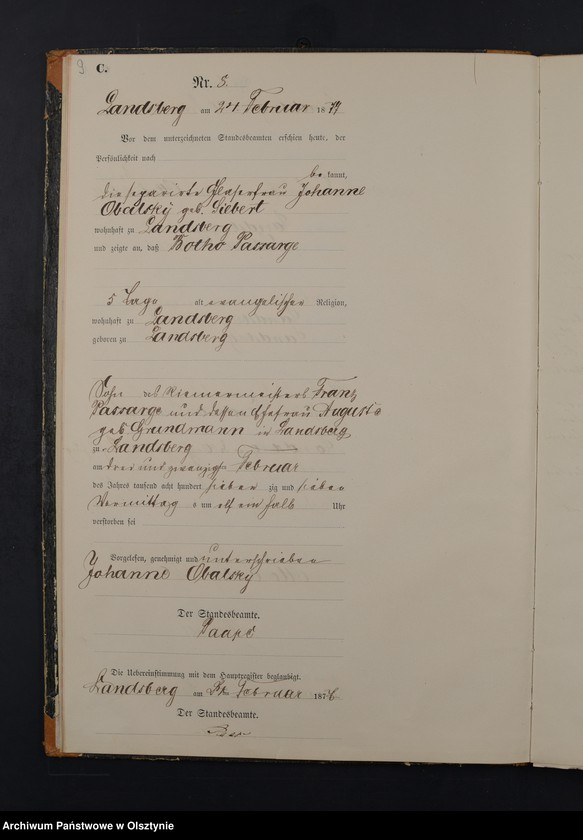 9
C.
Nr. 8.
Landsberg am 24 Februar 1877
Vor dem unterzeichneten Standesbeamten erschien heute, der
Persönlichkeit nach
be kannt,
die separirte Glaserfrau Johanne
Obalsky geb. Siebert
wohnhaft zu Landsberg
und zeigte an, daß Botho Passarge
5 Tage alt evangelischer Religion,
wohnhaft zu Landsberg
geboren zu Landsberg
Sohn des Riemermeisters Franz
Passarge und dessen Ehefrau Auguste
geb Grundmann in Landsberg
zu Landsberg
am drei und zwanzigsten Februar
des Jahres tausend acht hundert sieben zig und sieben
Vormittag s um elf ein halb Uhr
verstorben sei
Vorgelesen, genehmigt und unterschrieben
Johanne Obalsky
Der Standesbeamte.
Die Uebereinstimmung mit dem Hauptregister beglaubigt.
Landsberg am Februar 187
Der Standesbeamte.
Archiwum Państwowe w Olsztynie